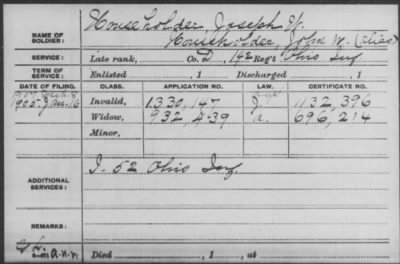 Householder, Joseph W.
NAME OF SOLDIER: Householder, John W. (alias)
SERVICE: Late rank, Co. D, 192 Reg't Ohio Inf
TERM OF SERVICE: Enlisted , 1 Discharged , 1
DATE OF FILING. CLASS. APPLICATION NO. LAW. CERTIFICATE NO.
1905 Jan. 16 Invalid, 1330,147 1132,396
Widow, 932,439 696,214
Minor,
ADDITIONAL SERVICES: I. 52 Ohio Inf
REMARKS:
Died , 1 , at